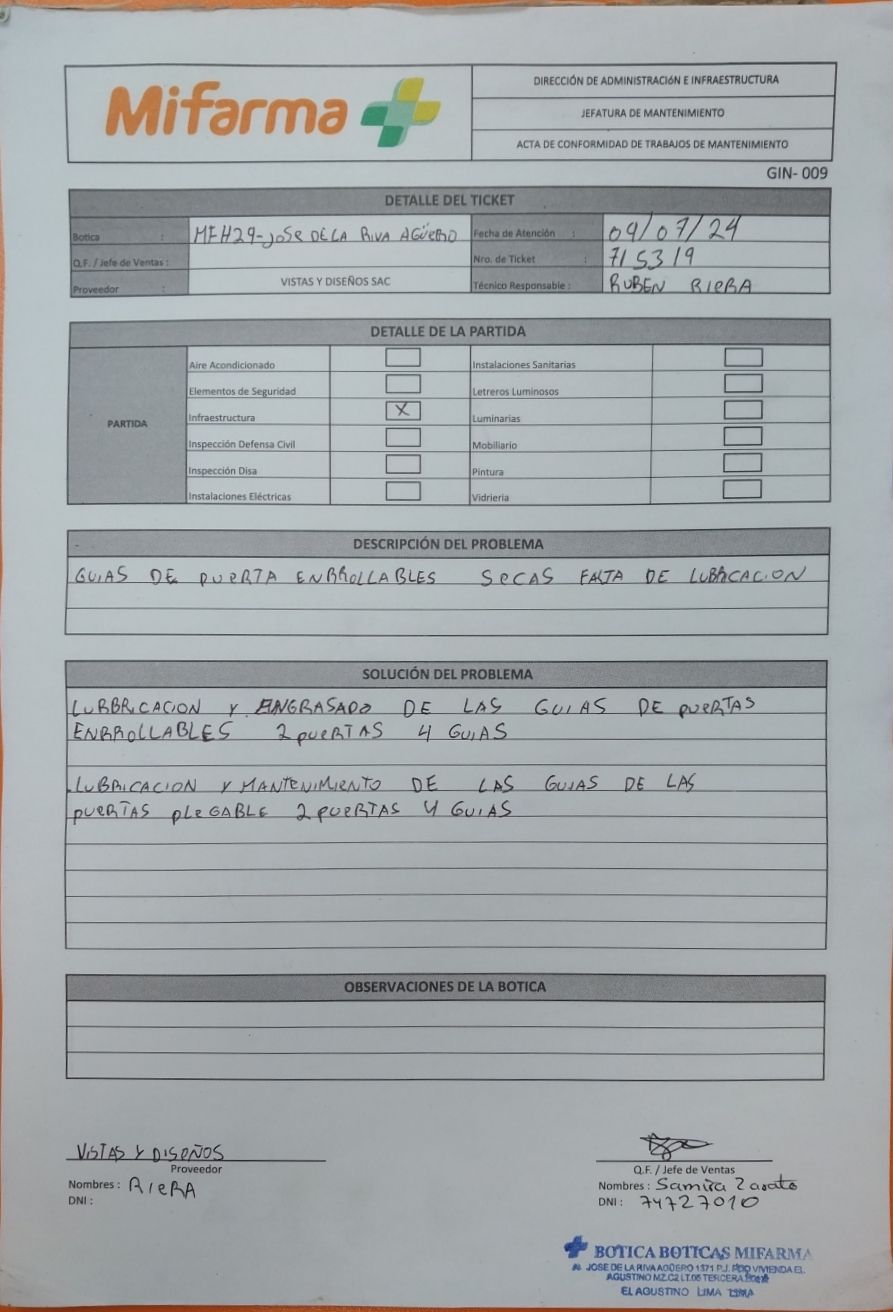 Mifarma
DIRECCIÓN DE ADMINISTRACIÓN E INFRAESTRUCTURA
JEFATURA DE MANTENIMIENTO
ACTA DE CONFORMIDAD DE TRABAJOS DE MANTENIMIENTO
GIN- 009
DETALLE DEL TICKET
Botica : MFH29-JOSE DE LA RIVA AGÜERO Fecha de Atención : 09/07/24
Q.F. / Jefe de Ventas : Nro. de Ticket : 715319
Proveedor : VISTAS Y DISEÑOS SAC Técnico Responsable : RUBEN RIERA
DETALLE DE LA PARTIDA
PARTIDA
Aire Acondicionado Instalaciones Sanitarias
Elementos de Seguridad Letreros Luminosos
Infraestructura X Luminarias
Inspección Defensa Civil Mobiliario
Inspección Disa Pintura
Instalaciones Eléctricas Vidrieria
DESCRIPCIÓN DEL PROBLEMA
GUIAS DE PUERTA ENRROLLABLES SECAS FALTA DE LUBRICACION
SOLUCIÓN DEL PROBLEMA
LURBRICACION Y ENGRASADO DE LAS GUIAS DE PUERTAS
ENRROLLABLES 2 PUERTAS 4 GUIAS
LUBRICACION Y MANTENIMIENTO DE LAS GUIAS DE LAS
PUERTAS PLEGABLE 2 PUERTAS 4 GUIAS
OBSERVACIONES DE LA BOTICA
VISTAS Y DISEÑOS
Proveedor Q.F. / Jefe de Ventas
Nombres : RIERA Nombres : Samira Zarate
DNI : DNI : 74727010
BOTICA BOTICAS MIFARMA
JOSE DE LA RIVA AGÜERO 1371 P.J. VIVIENDA EL
AGUSTINO MZ.C2 LT.06 TERCERA
EL AGUSTINO LIMA LIMA